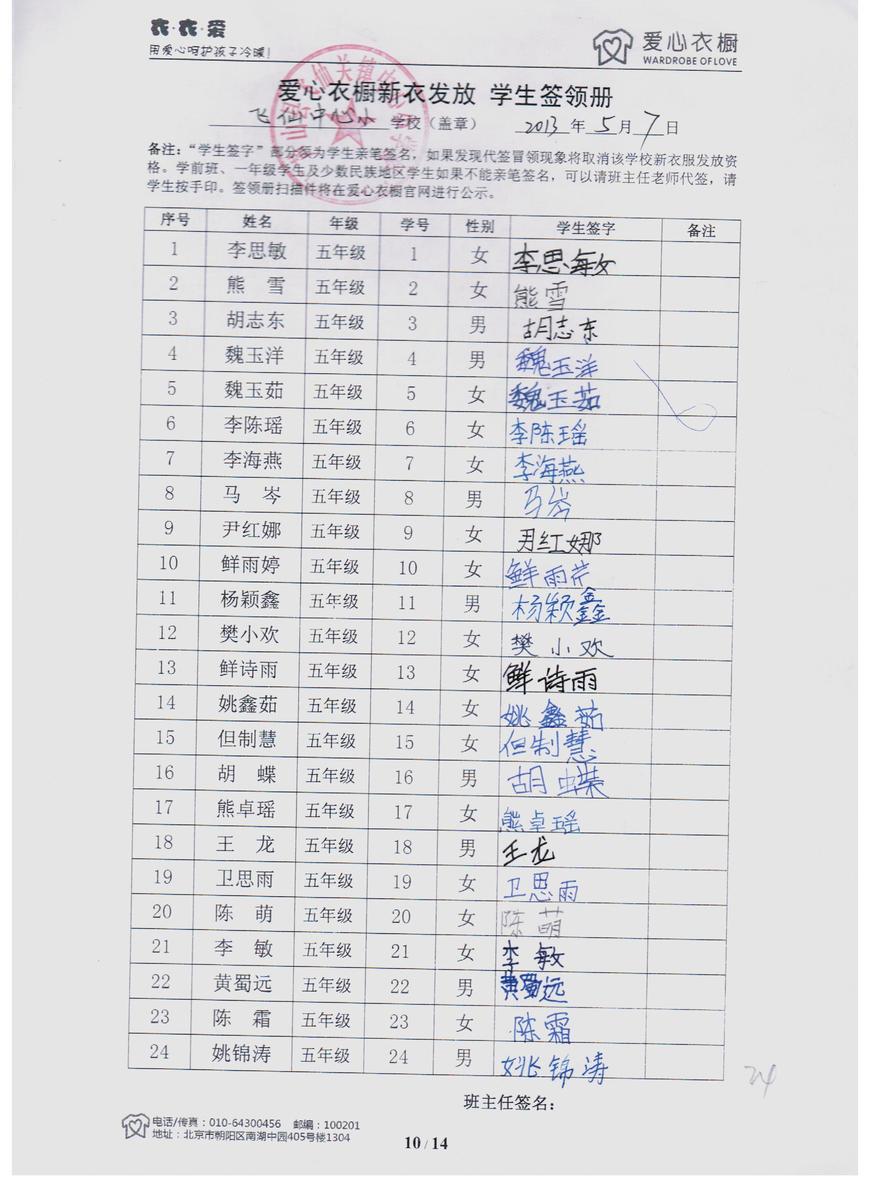 衣·衣·爱
用爱心呵护孩子冷暖!
爱心衣橱
WARDROBE OF LOVE
爱心衣橱新衣发放 学生签领册
飞仙中心小 学校（盖章） 2013 年 5 月 7 日
备注：“学生签字”部分须为学生亲笔签名，如果发现代签冒领现象将取消该学校新衣服发放资
格。学前班、一年级学生及少数民族地区学生如果不能亲笔签名，可以请班主任老师代签，请
学生按手印。签领册扫描件将在爱心衣橱官网进行公示。
序号 姓名 年级 学号 性别 学生签字 备注
1 李思敏 五年级 1 女 李思敏
2 熊 雪 五年级 2 女 熊雪
3 胡志东 五年级 3 男 胡志东
4 魏玉洋 五年级 4 男 魏玉洋
5 魏玉茹 五年级 5 女 魏玉茹
6 李陈瑶 五年级 6 女 李陈瑶
7 李海燕 五年级 7 女 李海燕
8 马 岑 五年级 8 男 马岑
9 尹红娜 五年级 9 女 尹红娜
10 鲜雨婷 五年级 10 女 鲜雨
11 杨颖鑫 五年级 11 男 杨颖鑫
12 樊小欢 五年级 12 女 樊小欢
13 鲜诗雨 五年级 13 女 鲜诗雨
14 姚鑫茹 五年级 14 女 姚鑫茹
15 但制慧 五年级 15 女 但制慧
16 胡 蝶 五年级 16 男 胡蝶
17 熊卓瑶 五年级 17 女 熊卓瑶
18 王 龙 五年级 18 男 王龙
19 卫思雨 五年级 19 女 卫思雨
20 陈 萌 五年级 20 女 陈萌
21 李 敏 五年级 21 女 李敏
22 黄蜀远 五年级 22 男 黄蜀远
23 陈 霜 五年级 23 女 陈霜
24 姚锦涛 五年级 24 男 姚锦涛
24
班主任签名：
电话/传真：010-64300456 邮编：100201
地址：北京市朝阳区南湖中园405号楼1304
10 / 14